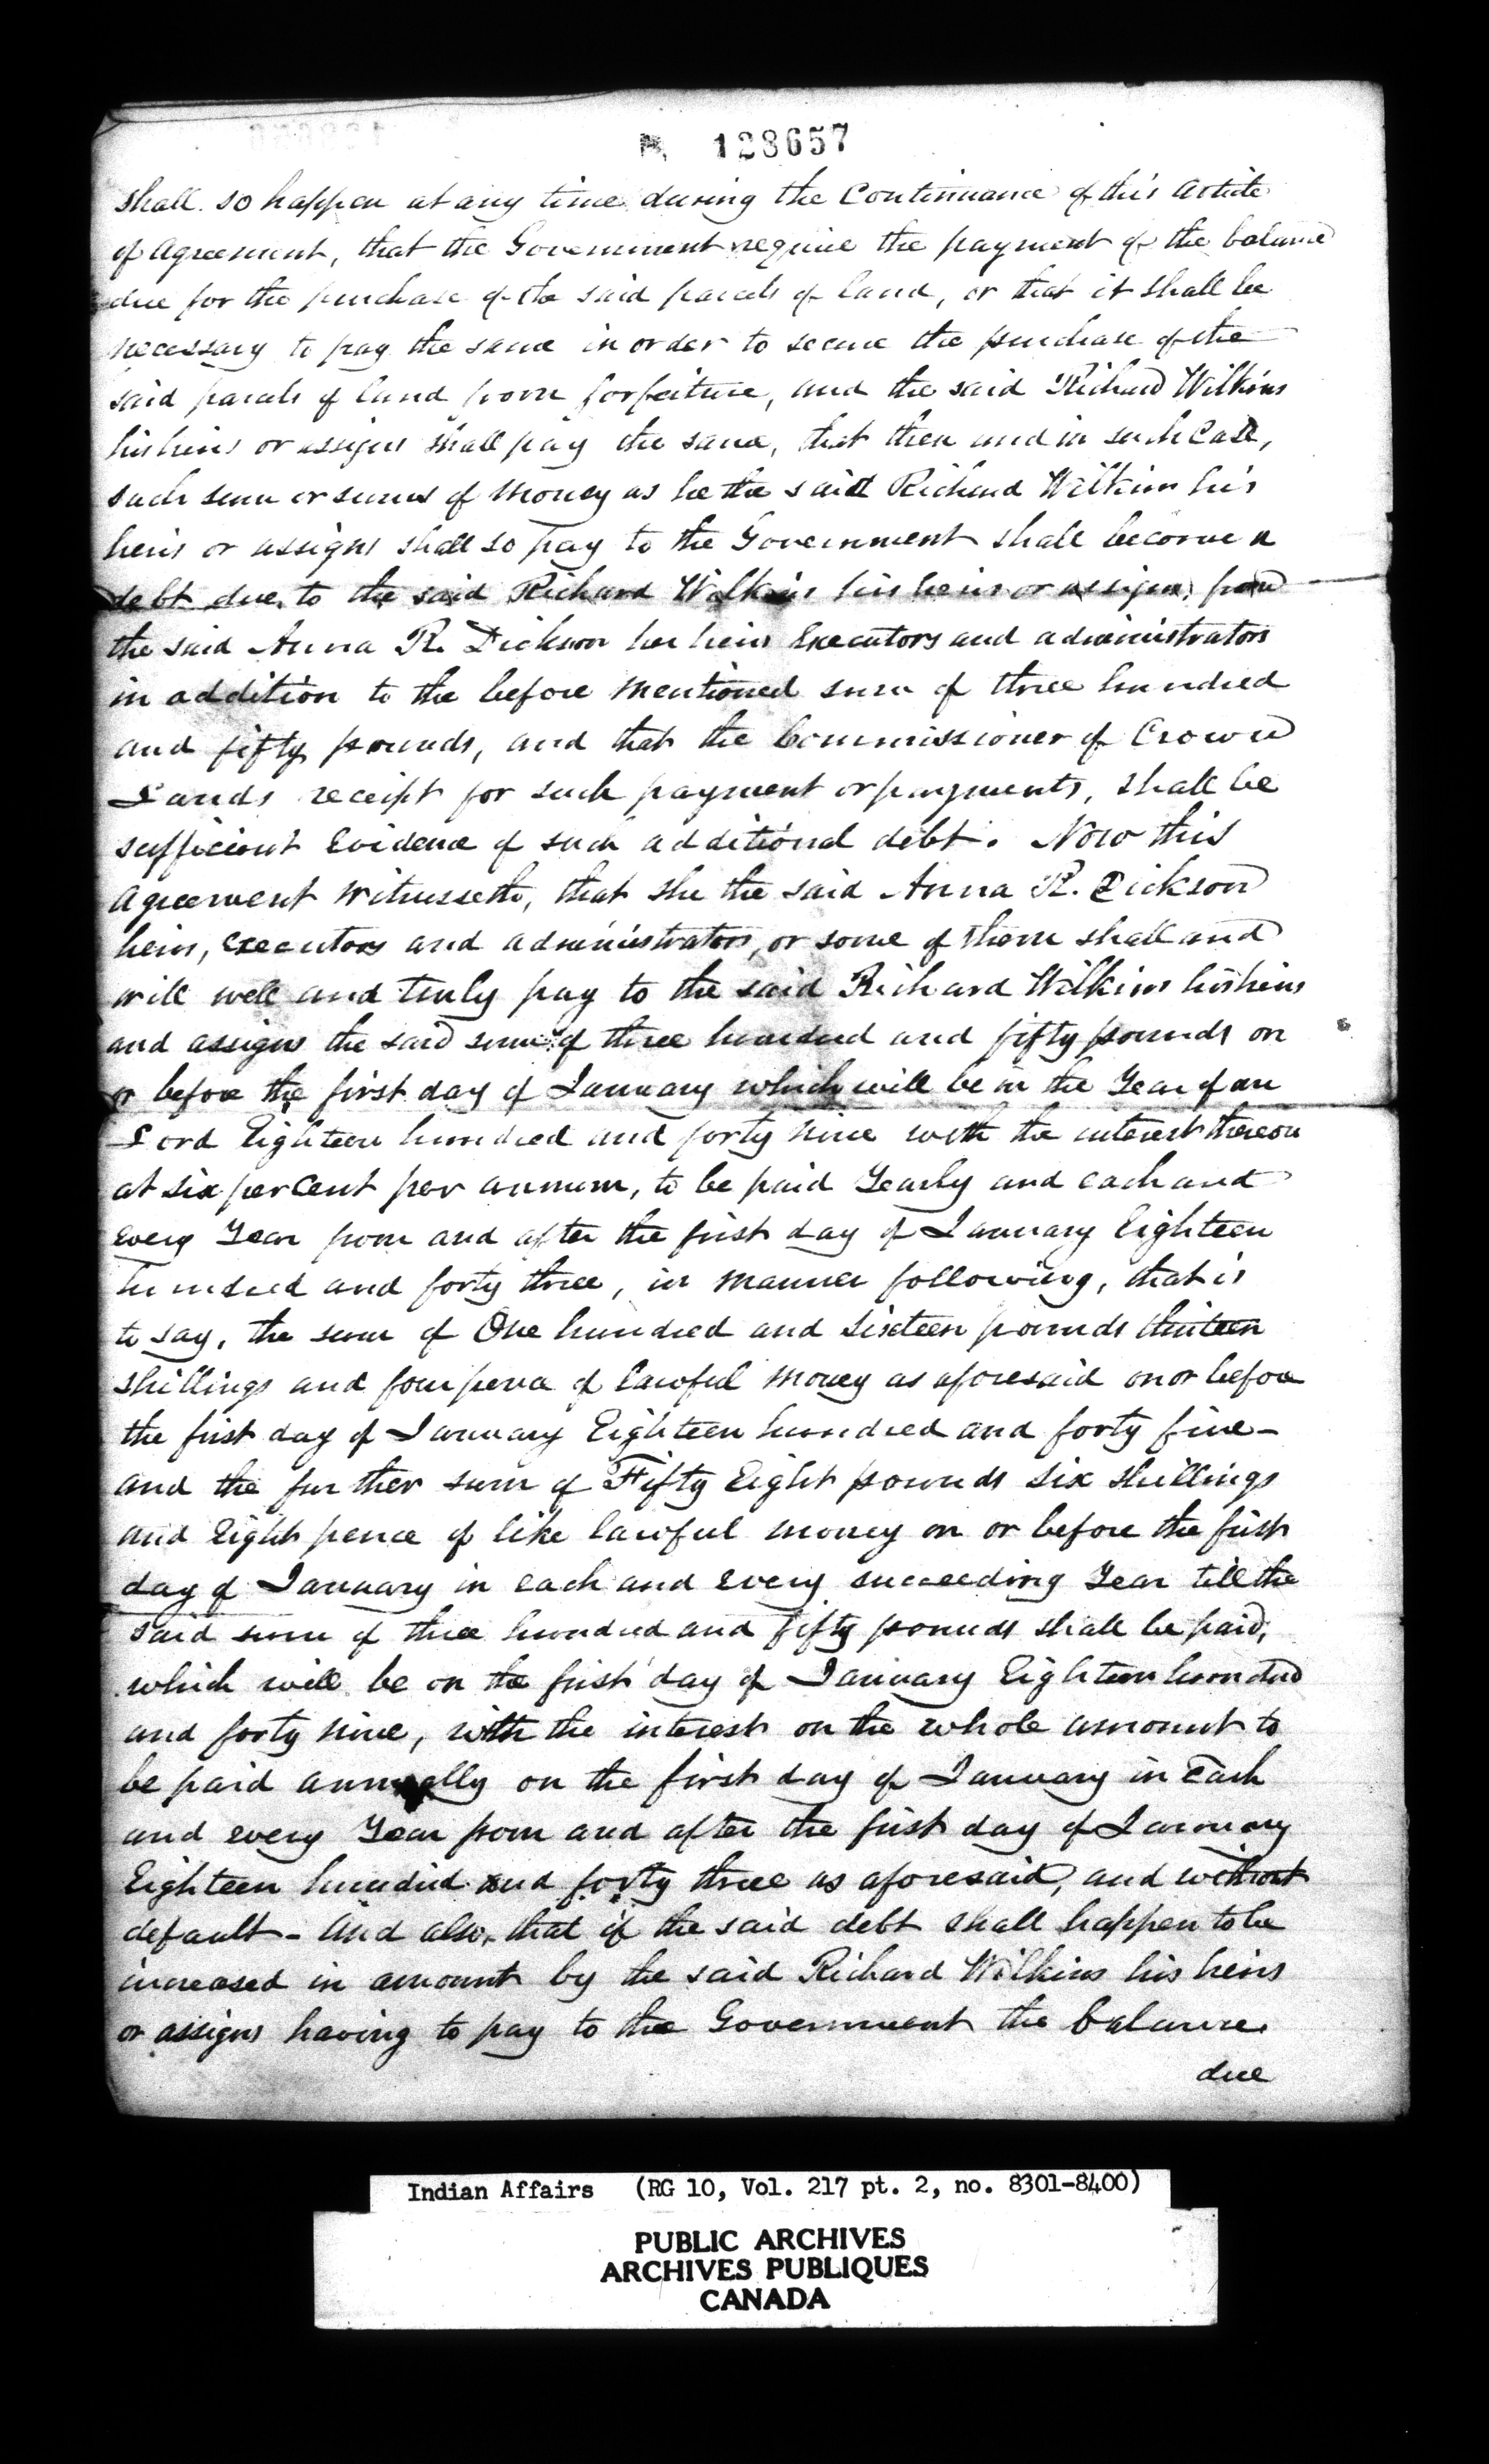 128657
shall so happen at any time during the Continuance of this Article
of Agreement, that the Government require the payment of the balance
due for the purchase of the said parcels of land, or that it shall be
necessary to pay the same in order to secure the purchase of the
said parcels of land from forfeiture, and the said Richard Wilkins
his heirs or assigns shall pay the same, that then and in such Case,
such sum or sums of Money as he the said Richard Wilkins his
heirs or assigns shall so pay to the Government shall become a
debt due to the said Richard Wilkins his heirs or assigns, from
the said Anna R. Dickson her heirs Executors and administrators
in addition to the before mentioned sum of three hundred
and fifty pounds, and that the Commissioner of Crown
Lands receipt for such payment or payments, shall be
sufficient Evidence of such additional debt. Now this
Agreement Witnesseth, that she the said Anna R. Dickson
heirs, Executors and administrators, or some of them shall and
will well and truly pay to the said Richard Wilkins his heirs
and assigns the said sum of three hundred and fifty pounds on
or before the first day of January which will be in the Year of our
Lord Eighteen hundred and forty nine with the interest thereon
at six per Cent per annum, to be paid Yearly and each and
every Year from and after the first day of January Eighteen
hundred and forty three, in manner following, that is
to say, the sum of One hundred and Sixteen pounds thirteen
shillings and four pence of lawful Money as aforesaid on or before
the first day of January Eighteen hundred and forty five -
and the further sum of Fifty Eight pounds six shillings
and Eight pence of like lawful money on or before the first
day of January in each and every succeeding Year till the
said sum of three hundred and fifty pounds shall be paid,
which will be on the first day of January Eighteen hundred
and forty nine, with the interest on the whole amount to
be paid annually on the first day of January in Each
and every Year from and after the first day of January
Eighteen hundred and forty three as aforesaid, and without
default - And also, that if the said debt shall happen to be
increased in amount by the said Richard Wilkins his heirs
or assigns having to pay to the Government the balance
due
Indian Affairs (RG 10, Vol. 217 pt. 2, no. 8301-8400)
PUBLIC ARCHIVES
ARCHIVES PUBLIQUES
CANADA